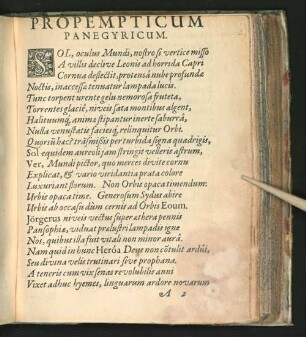 PROPEMPTICUM
PANEGYRICUM.
SOL, oculus Mundi, nostro si vertice misso
A villis declive Leonis ad horrida Capri
Cornua deflectit, protensâ nube profundæ
Noctis, inaccessa tenuatur lampada lucis.
Tunc torpent urente gelu nemorosa fruteta,
Torrentes glacie, niveis sata montibus algent,
Halituumq; anima stipantur inerte saburrâ,
Nulla venustatis facies relinquitur Orbi.
Quorsũ hæc? trãsmissis per turbida signa quadrigis,
Sol equidem aureolijam stringit velleris astrum,
Ver, Mundi pictor, quo merces divite cornu
Explicat, & vario viridantia prata colore
Luxuriant florum. Non Orbis opaca timendum:
Urbis opaca time. Generosum Sydus abire
Urbis ab occasu dum cernis ad Orbis Eoum,
Jörgerus niveis vectus super æthera pennis
Pansophiæ, viduat prælustri lampadis igne
Nos, quibus illa fuit vitali non minor aurâ.
Nam quid in hunc Heröa Deus non cõtulit ardũi,
Seu divina velis trutinari sive prophana.
A teneris cum vix senas revolubilis anni
Vixet adhuc hyemes, linguarum ardore novarum
A 2